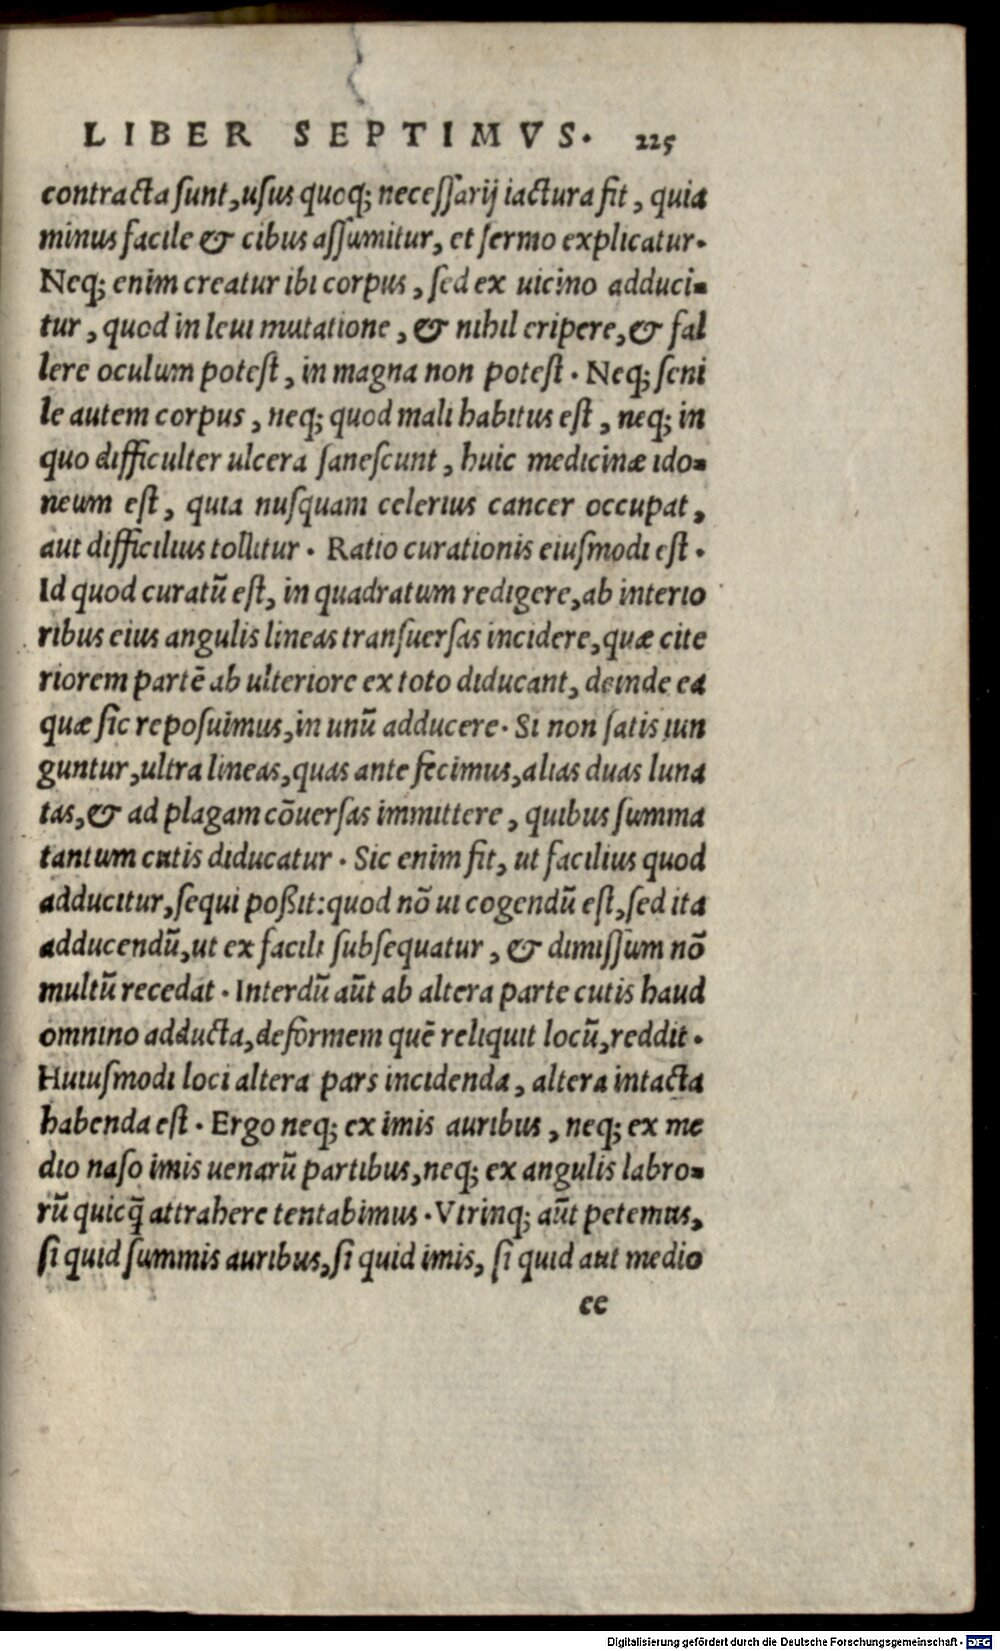 LIBER SEPTIMVS. 225
contracta sunt, usus quoq; necessarij iactura fit, quia
minus facile & cibus assumitur, et sermo explicatur.
Neq; enim creatur ibi corpus, sed ex uicino adduci-
tur, quod in leui mutatione, & nihil eripere, & fal
lere oculum potest, in magna non potest. Neq; seni
le autem corpus, neq; quod mali habitus est, neq; in
quo difficulter ulcera sanescunt, huic medicinæ ido-
neum est, quia nusquam celerius cancer occupat,
aut difficilius tollitur. Ratio curationis eiusmodi est.
Id quod curatū est, in quadratum redigere, ab interio
ribus eius angulis lineas transuersas incidere, quæ cite
riorem partē ab ulteriore ex toto diducant, deinde ea
quæ sic reposuimus, in unū adducere. Si non satis iun
guntur, ultra lineas, quas ante fecimus, alias duas luna
tas, & ad plagam cōuersas immittere, quibus summa
tantum cutis diducatur. Sic enim fit, ut facilius quod
adducitur, sequi poßit: quod nō ui cogendū est, sed ita
adducendū, ut ex facili subsequatur, & dimissum nō
multū recedat. Interdū aūt ab altera parte cutis haud
omnino adducta, deformem quē reliquit locū, reddit.
Huiusmodi loci altera pars incidenda, altera intacta
habenda est. Ergo neq; ex imis auribus, neq; ex me
dio naso imis uenarū partibus, neq; ex angulis labro-
rū quicq̄ attrahere tentabimus. Vtrinq; aūt petemus,
si quid summis auribus, si quid imis, si quid aut medio
ee
Digitalisierung gefördert durch die Deutsche Forschungsgemeinschaft - DFG